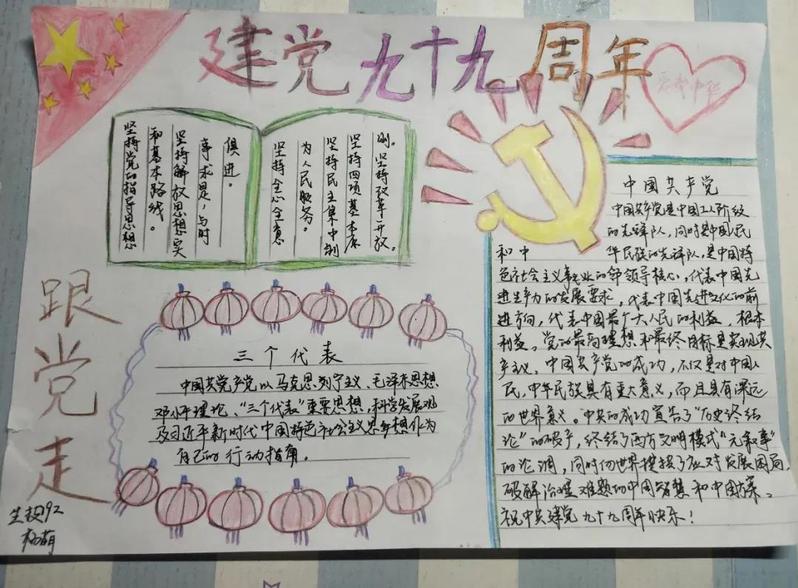 建党九十九周年
爱我中华
坚持党的指导思想
和基本路线。
坚持解放思想实
事求是，与时
俱进。
坚持全心全意
为人民服务。
坚持民主集中制
坚持四项基本原
则。坚持改革开放。
跟党走
三个代表
中国共党产党以马克思列宁主义、毛泽东思想
邓小平理论、“三个代表”重要思想，科学发展观
及习近平新时代中国特色社会主义思乡想作为
自己的行动指南。
中国共产党
中国共产党是中国工人阶级
的先锋队，同时是中国人民
和中华民族的先锋队，是中国特
色社会主义事业的领导核心，代表中国先
进生产力的发展要求，代表中国先进文化的前
进方向，代表中国最广大人民的利益，根本
利益。党的最高理想和最终目标是实现共
产主义。中国共产党的成功，不仅是对中国人
民，中华民族具有重大意义，而且具有深远
的世界意义。中共的成功宣告了“历史终结
论”的破产，终结了西方文明模式“元叙事”
的论调，同时给世界提供了应对发展困局，
破解治理难题的中国智慧和中国方案。
祝中共建党九十九周年快乐！